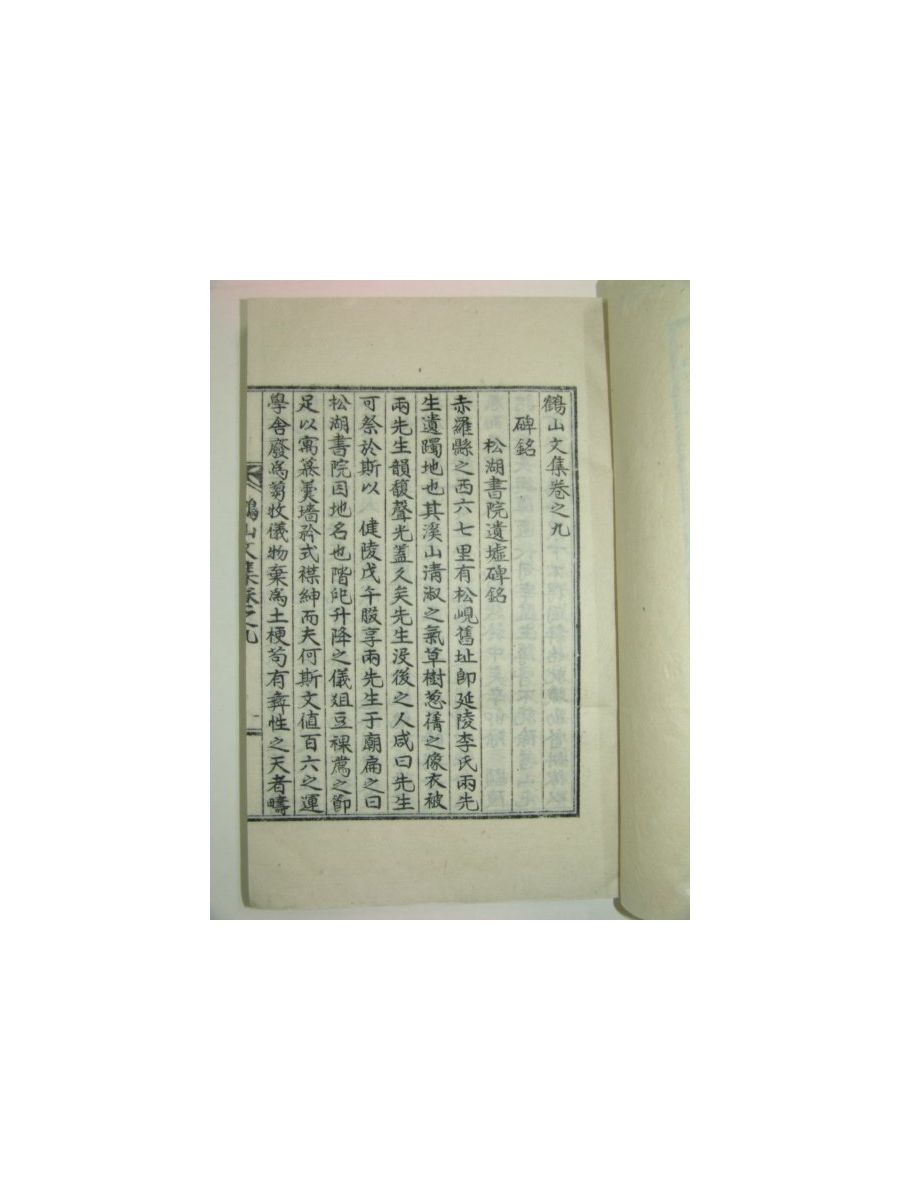 鶴山文集卷之九
碑銘
松湖書院遺墟碑銘
赤羅縣之西六七里有松峴舊址卽延陵李氏兩先
生遺躅地也其溪山淸淑之氣草樹蔥蒨之像衣被
兩先生韻馥聲光蓋久矣先生沒後之人咸曰先生
可祭於斯以 健陵戊午腏享兩先生于廟扁之曰
松湖書院因地名也階戺升降之儀俎豆祼薦之節
足以寓慕羹墻矜式襟紳而夫何斯文値百六之運
學舍廢爲蒭牧儀物棄爲土梗苟有彝性之天者疇
鶴山文集卷之九